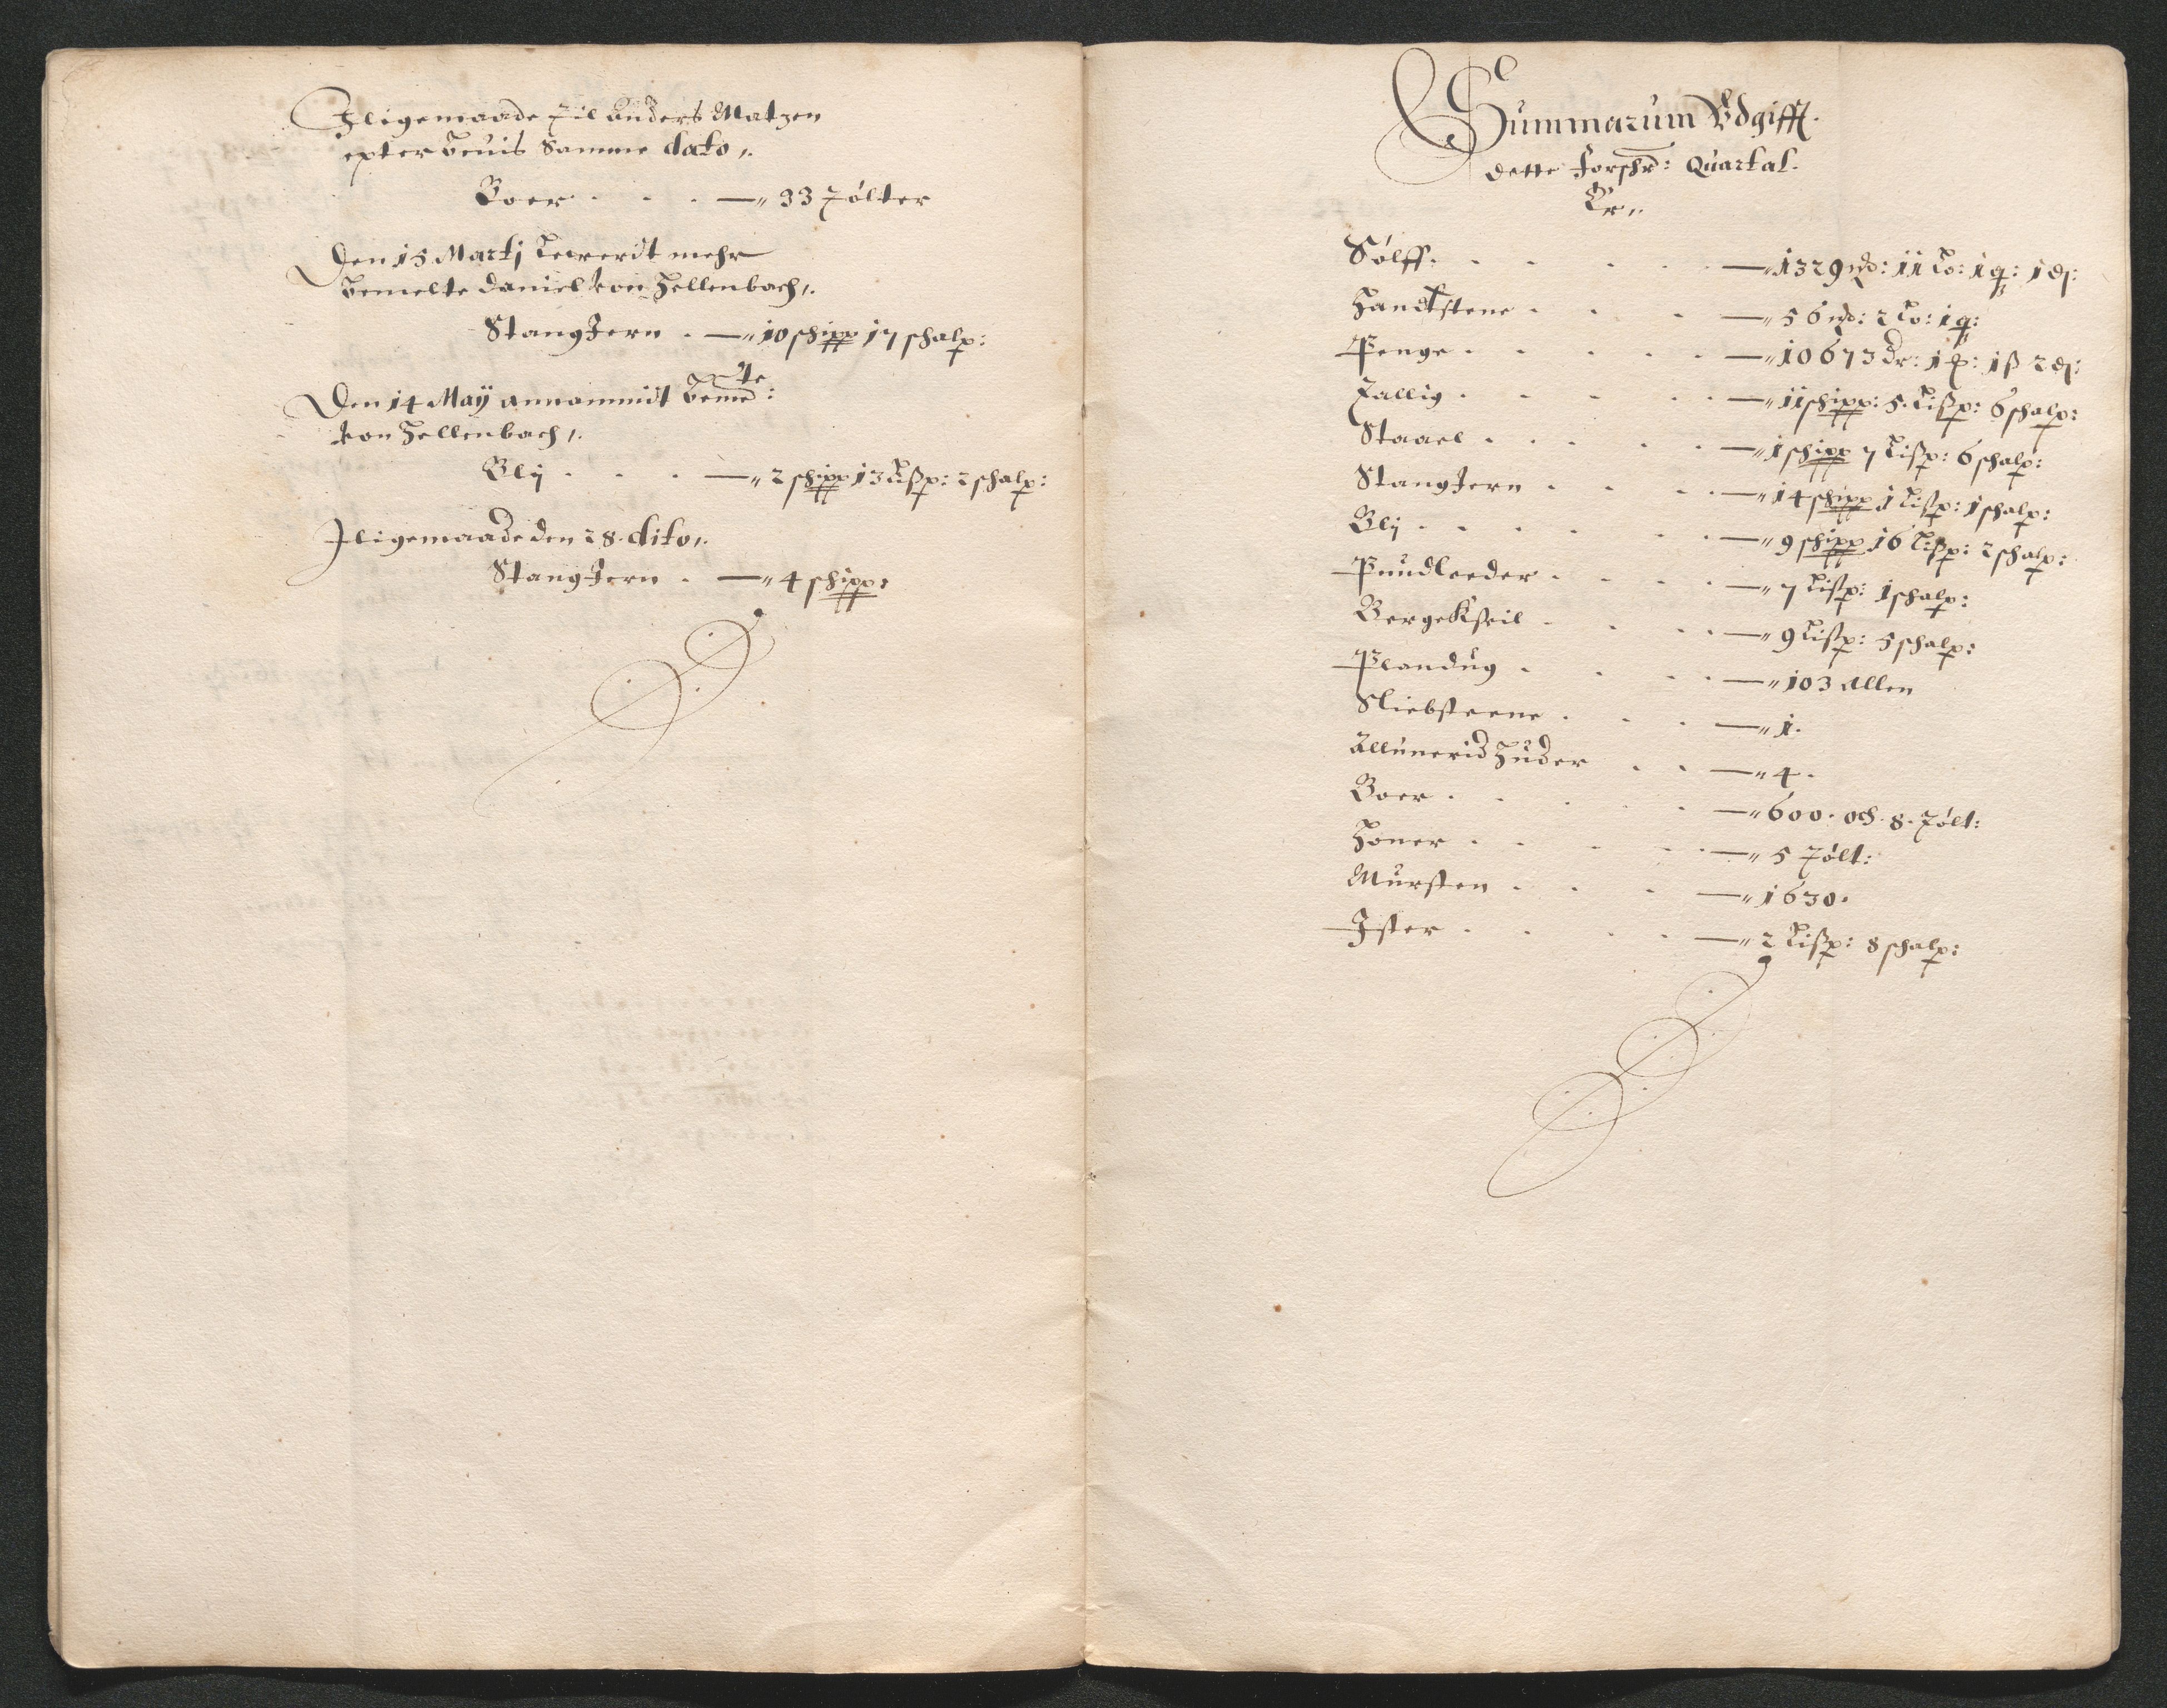 Jligemaade til Anders Matzen
epter Bevis Samme dato ,.
Boer . . . —,, 33 tölter
Den 15 Martj Leveredt mehr
bemelte Daniel von Hellenbach ,.
StangJern . —,, 10 schipp 17 schalp:
Den 14 Maij annammidt bemelte:
von Hellenbach ,.
Blij . . . —,, 2 schipp 13 Lißp: 2 schalp:
Jligemaade den 28. dito ,.
StangJern . —,, 4 schipp:
Summarum Vdgifft.
dette forschr: Quartal.
Er ,.
Sölff . . . . . —,, 1329 mk: 11 Lo: 1 q: 1 ₰:
Handtstene . . . —,, 56 mk: 2 Lo: 1 q:
Penge . . . . . —,, 10673 dr: 1 : 1 ß 2 ₰:
Tallig . . . . . —,, 11 schipp: 5. Lißp: 6 schalp:
Staael . . . . . —,, 1 schipp 7 Lißp: 6 schalp:
StangJern . . . . —,, 14 schipp 1 Lißp: 1 schalp:
Blij . . . . . . —,, 9 schipp 16 Lißp: 2 schalp:
Pundleeder . . . . —,, 7 Lißp: 1 schalp:
BergeKseil . . . . —,, 9 Lißp: 5 schalp:
Plandug . . . . —,, 103 Allen
Sliebsteene . . . —,, 1.
Allunerid Huder . . —,, 4.
Boer . . . . . —,, 600. och 8. tölt:
Honer . . . . . —,, 5 tölt:
Mursten . . . —,, 1630.
Jster . . . . —,, 2 Lißp: 8 schalp: